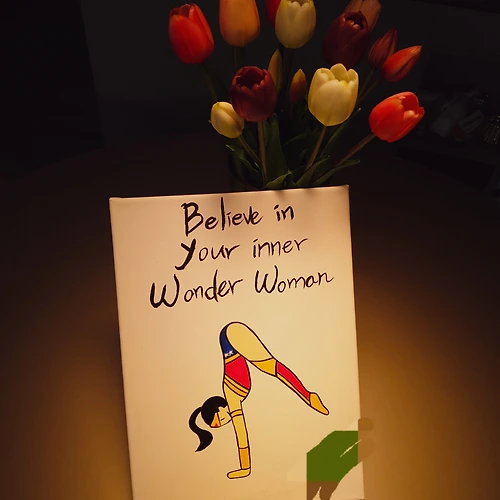 Believe in
Your inner
Wonder Woman